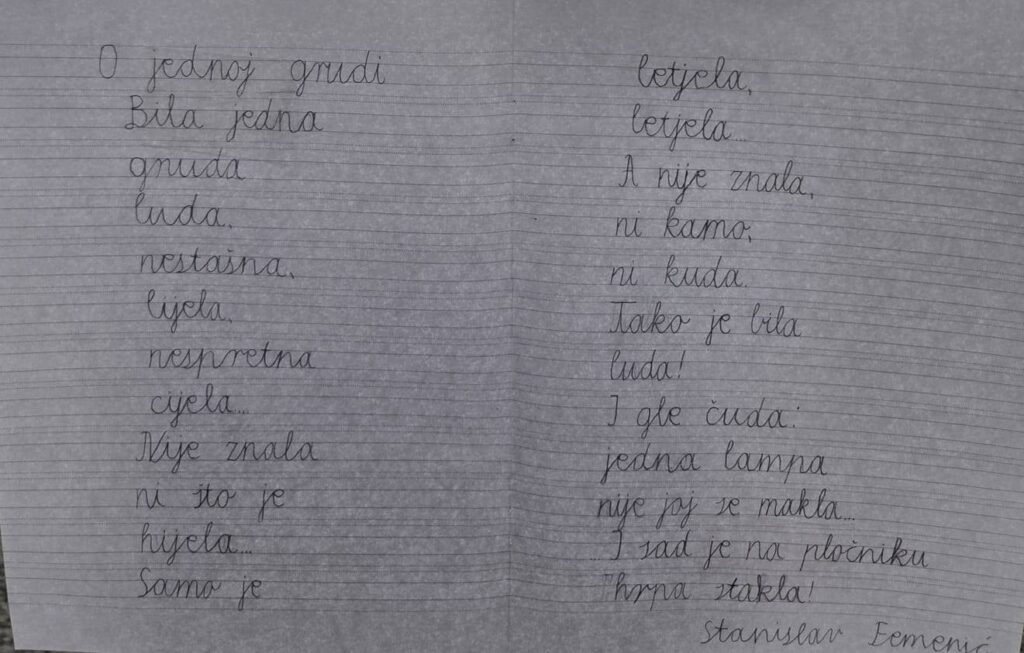 O jednoj grudi
Bila jedna
gruda
luda,
nestašna,
lijela,
nespretna
cijela...
Nije znala
ni što je
htjela...
Samo je
letjela,
letjela...
A nije znala,
ni kamo,
ni kuda.
Tako je bila
luda!
I gle čuda:
jedna lampa
nije joj se makla...
I sad je na pločniku
hrpa stakla!
Stanislav Femenić